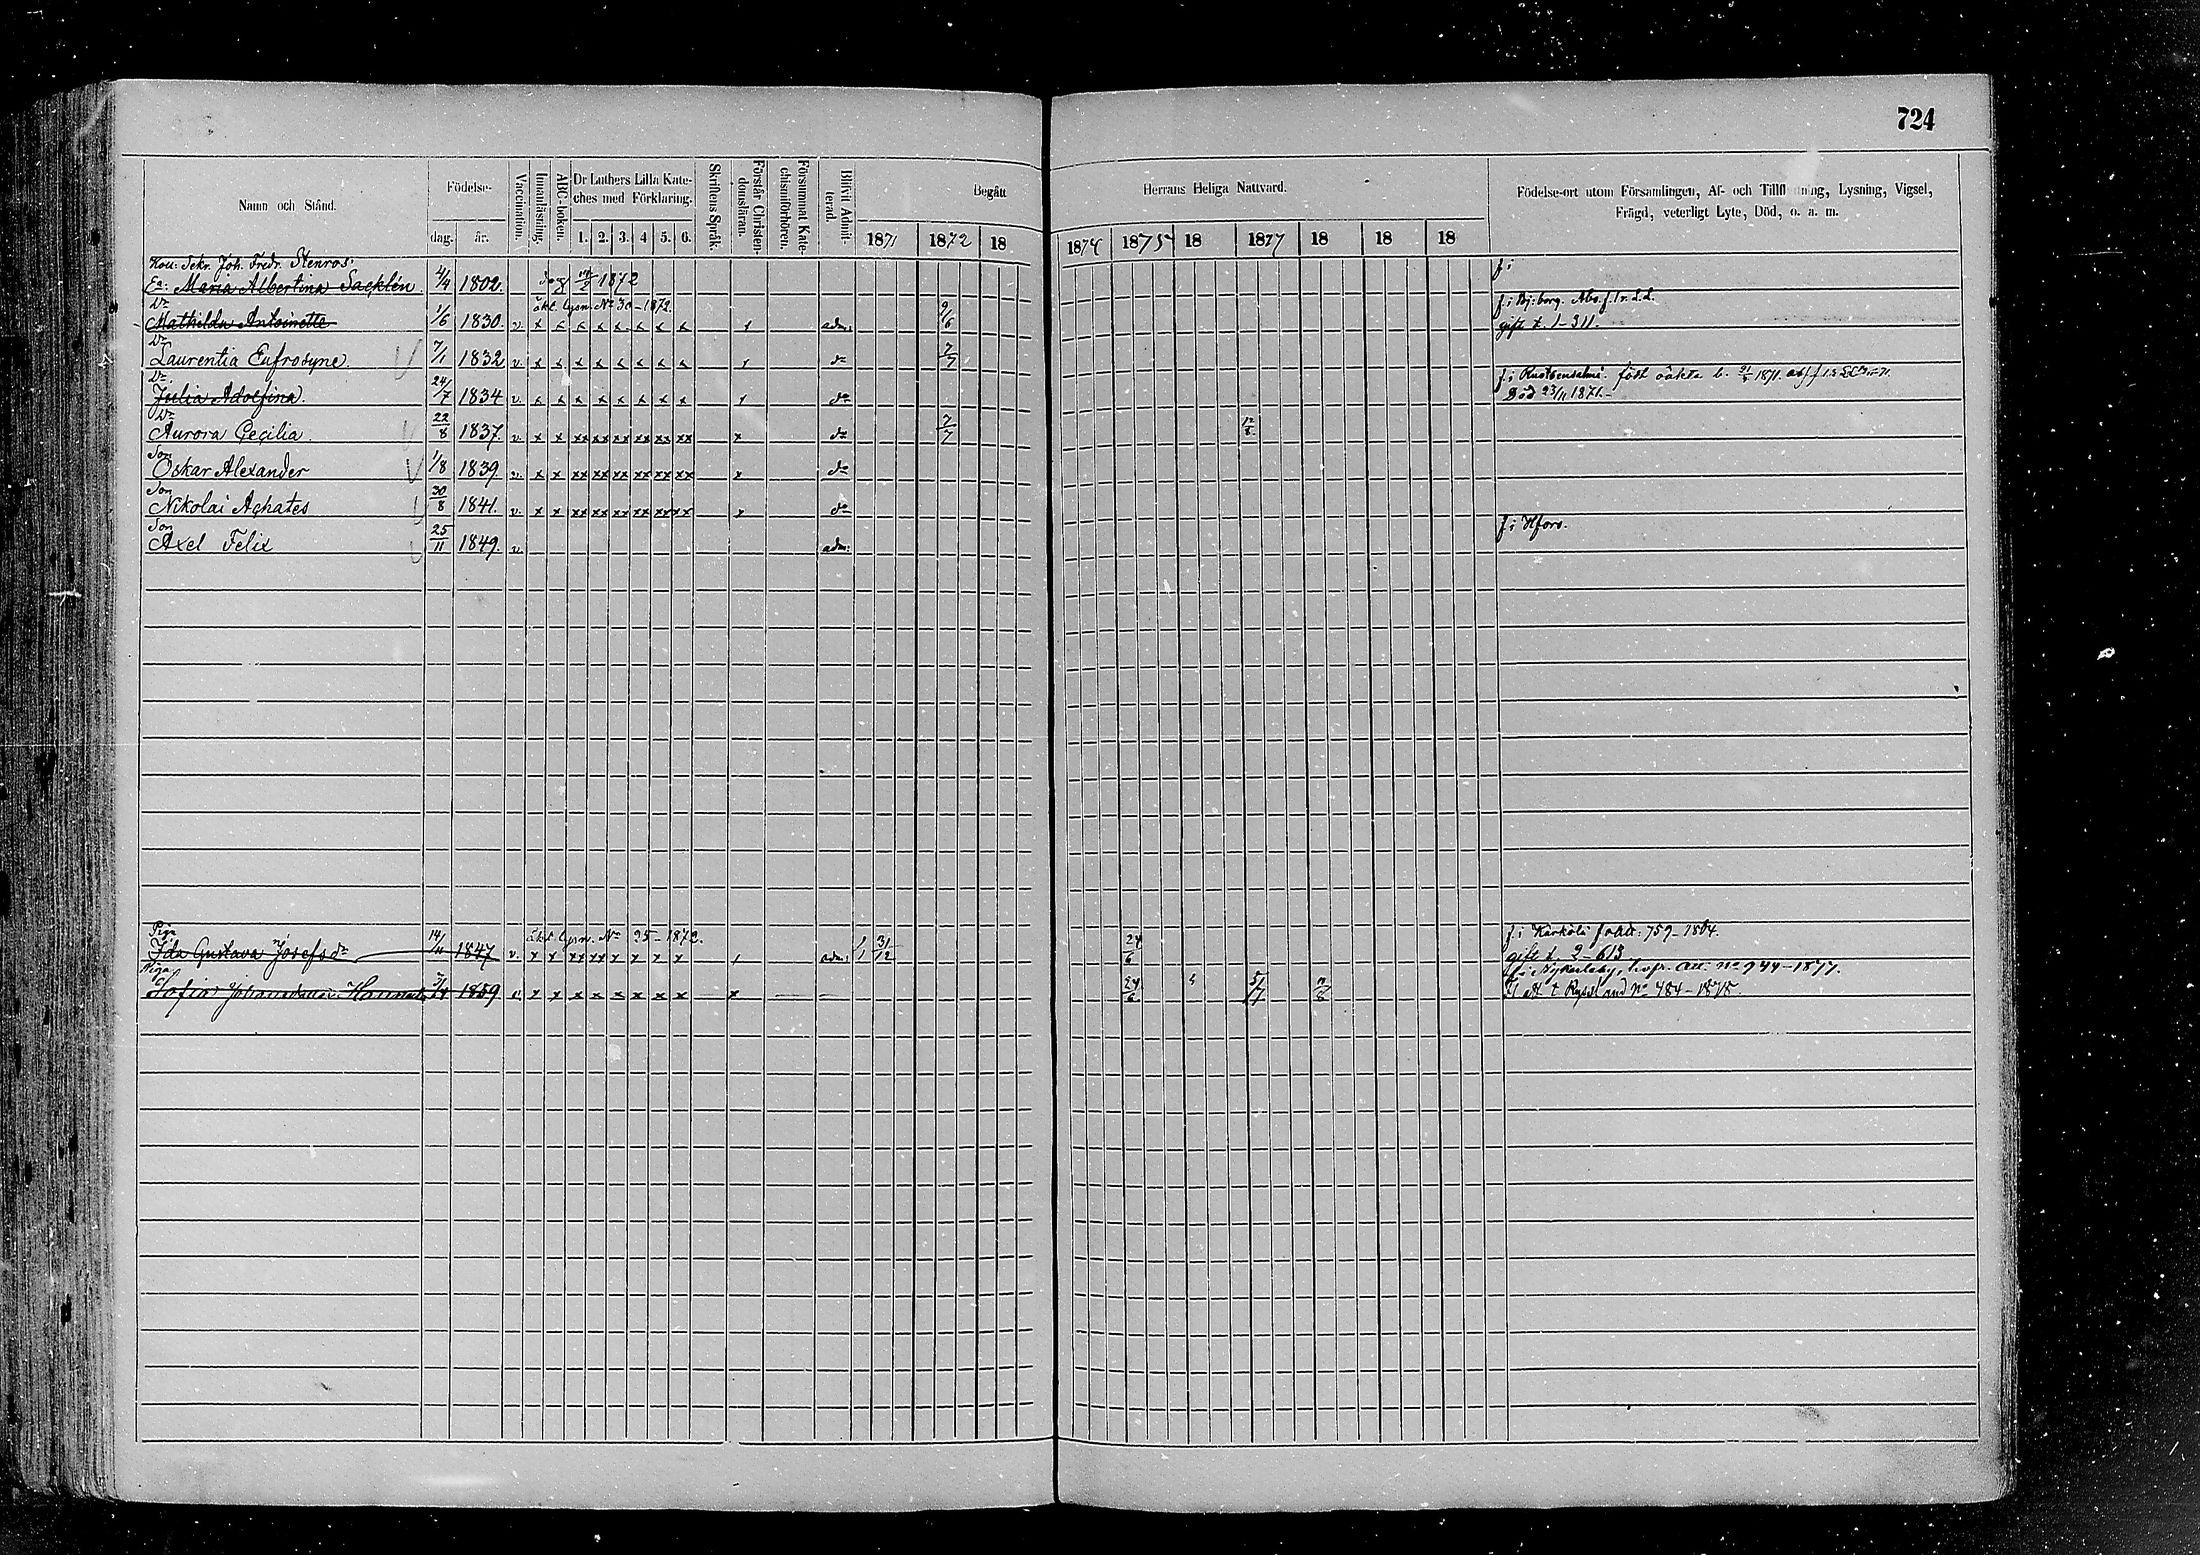 724
Namn och Stånd. Födelse- dag. år. Vaccination. Innanläsning. ABC-boken. Dr Luthers Lilla Kateches med Förklaring. 1. 2. 3. 4 5. 6. Skriftens Språk. Förstår Christendomsläran. Försummat Katechismiförhören. Blifvit Admitterad. Begått Herrans Heliga Nattvard. 1871 1872 18 1874 1875 18 1877 18 18 18 Födelse-ort utom Församlingen, Af- och Tillflyttning, Lysning, Vigsel, Frägd, veterligt Lyte, Död, o. a. m.
Koll: Sekr. Joh. Fredr. Stenros:
Ea: Maria Albertina Sacklén 4/4 1802. 1872 f. i
Dr äkt. Lysn. No 30-1872. f. i Bj:borg.
Mathilda Antoinette 1/6 1830. v. x x x x x x x x x adm: 2/6 gift t. 1-311.
Dr
Laurentia Eufrosyne. 7/1 1832 v. x x x x x x x x x do 7/7
Dr. f. i född oäkta b. 1871.
Julia Adolfina. 24/7 1834 v. x x x x x x x x x do Död 23/11 1871.-
Dr
Aurora Cecilia. 22/8 1837. v. x x xx xx xx xx xx xx x do 7/7 12/8.
Son
Oskar Alexander 1/8 1839 v. x x xx xx xx xx xx xx x do
Son
Nikolai Achates 30/8 1841. v. x x xx xx xx xx xx xx x do
Son f. i Hfors.
Axel Felix 25/11 1849. v. adm:
Piga äkt. Lysn. No 25-1872. f. i Kärkölä
Ida Gustava Josefsdr 14/11 1847 v. x x xx xx x x x x adm: 31/12 24/6 gift t. 2-613
Piga f. i Nykarleby, No 944-1877.
Sofia 1859 v. x x x x x x x x x 24/6 5/7 t. Ryssland No 484-1878.